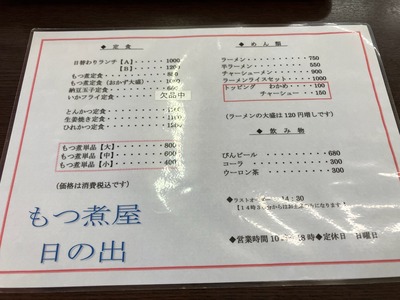 ◆ 定 食 ◆
日替わりランチ【A】・・・・・ 1000
【B】・・・・・ 1200
もつ煮定食・・・・・・・・ 850
もつ煮定食（おかず大盛）・・・
納豆玉子定食・・・・・・・ 600
いかフライ定食・・・・・・ 欠品中
とんかつ定食・・・・・・・
生姜焼き定食・・・・・・・
ひれかつ定食・・・・・・・ 1500
もつ煮単品【大】・・・・・・ 800
もつ煮単品【中】・・・・・・ 600
もつ煮単品【小】・・・・・・ 400
（価格は消費税込です）
もつ煮屋
日の出
◆ めん類 ◆
ラーメン・・・・・・・・・ 750
半ラーメン・・・・・・・・ 550
チャーシューメン・・・・・ 900
ラーメンライスセット・・・ 1000
トッピング わかめ・・・・ 100
チャーシュー・・・ 150
（ラーメンの大盛は120円増しです）
◆ 飲み物 ◆
びんビール・・・・・・・・ 680
コーラ・・・・・・・・・・ 300
ウーロン茶・・・・・・・・ 300
◆ラストオーダー 14：30
◆営業時間 ◆定休日 日曜日